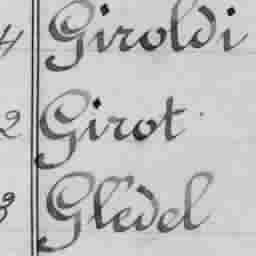 4 Giroldi
2 Girot
3 Glédel